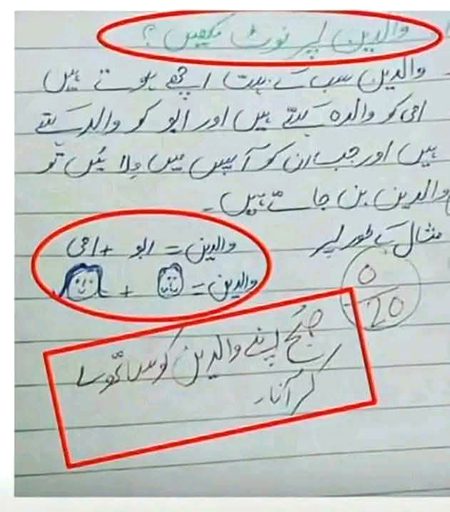 والدین پر نوٹ لکھیں ؟
والدین سب کے بہت اچھے ہوتے ہیں
امی کو والدہ کہتے ہیں اور ابو کو والد کہتے
ہیں اور جب ان کو آپس میں ملائیں تو
والدین بن جاتے ہیں۔
مثال کے طور پر
والدین = ابو + امی
والدین = +
0
20
صبح اپنے والدین کو ساتھ لے
کر آنا۔